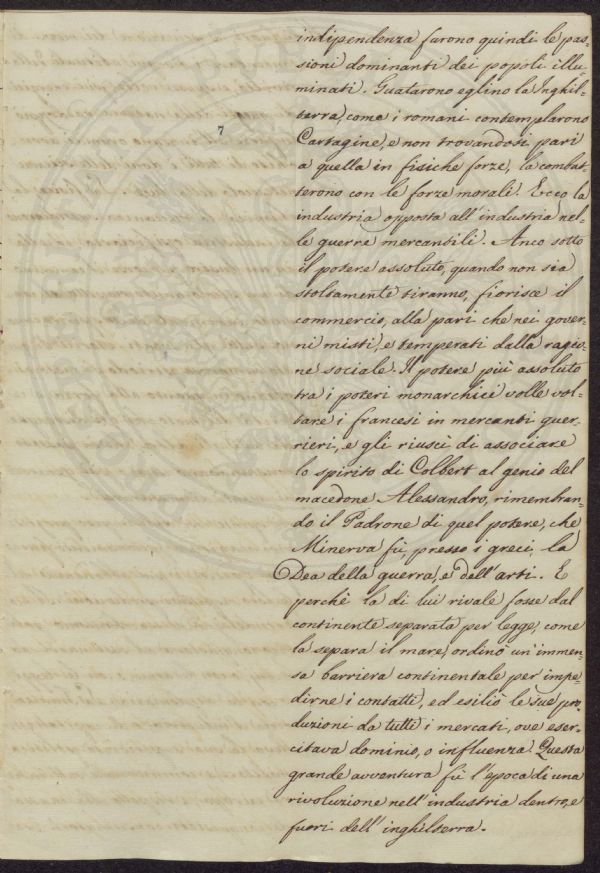 7
indipendenza furono quindi le pas-
sioni dominanti dei popoli illu-
minati. Guatarono eglino la Inghil-
terra, come i romani contemplarono
Cartagine, e non trovandosi pari
a quella in fisiche forze, la combat-
terono con le forze morali. Ecco la
industria opposta all'industria nel-
le guerre mercantili. Anco sotto
il potere assoluto, quando non sia
stoltamente tiranno, fiorisce il
commercio, alla pari che nei gover-
ni misti, e temperati dalla ragio-
ne sociale. Il potere più assoluto
tra i poteri monarchici volle vol-
tare i francesi in mercanti guer-
rieri, e gli riuscì di associare
lo spirito di Colbert al genio del
macedone Alessandro, rimembran-
do il Padrone di quel potere, che
Minerva fù, presso i greci, la
Dea della guerra, e dell'arti. E
perchè la di lui rivale fosse dal
continente separata per legge, come
la separa il mare, ordinò un'immen-
sa barriera continentale per impe-
dirne i contatti, ed esiliò le sue pro-
duzioni da tutti i mercati, ove eser-
citava dominio, o influenza. Questa
grande avventura fù l'epoca di una
rivoluzione nell'industria dentro, e
fuori dell'inghilterra.